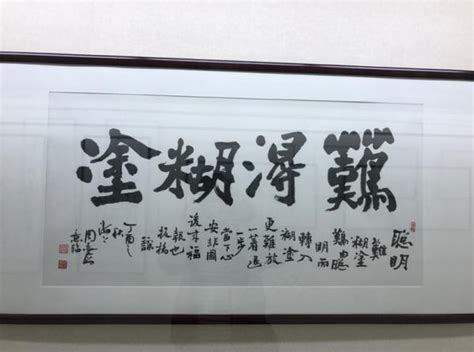 難得糊塗
聰明
難
糊塗
難由聰
明而
轉入
糊塗
更難放
一着退
一步
當下心
安非圖
後來福
報也
板橋
識
丁酉
秋